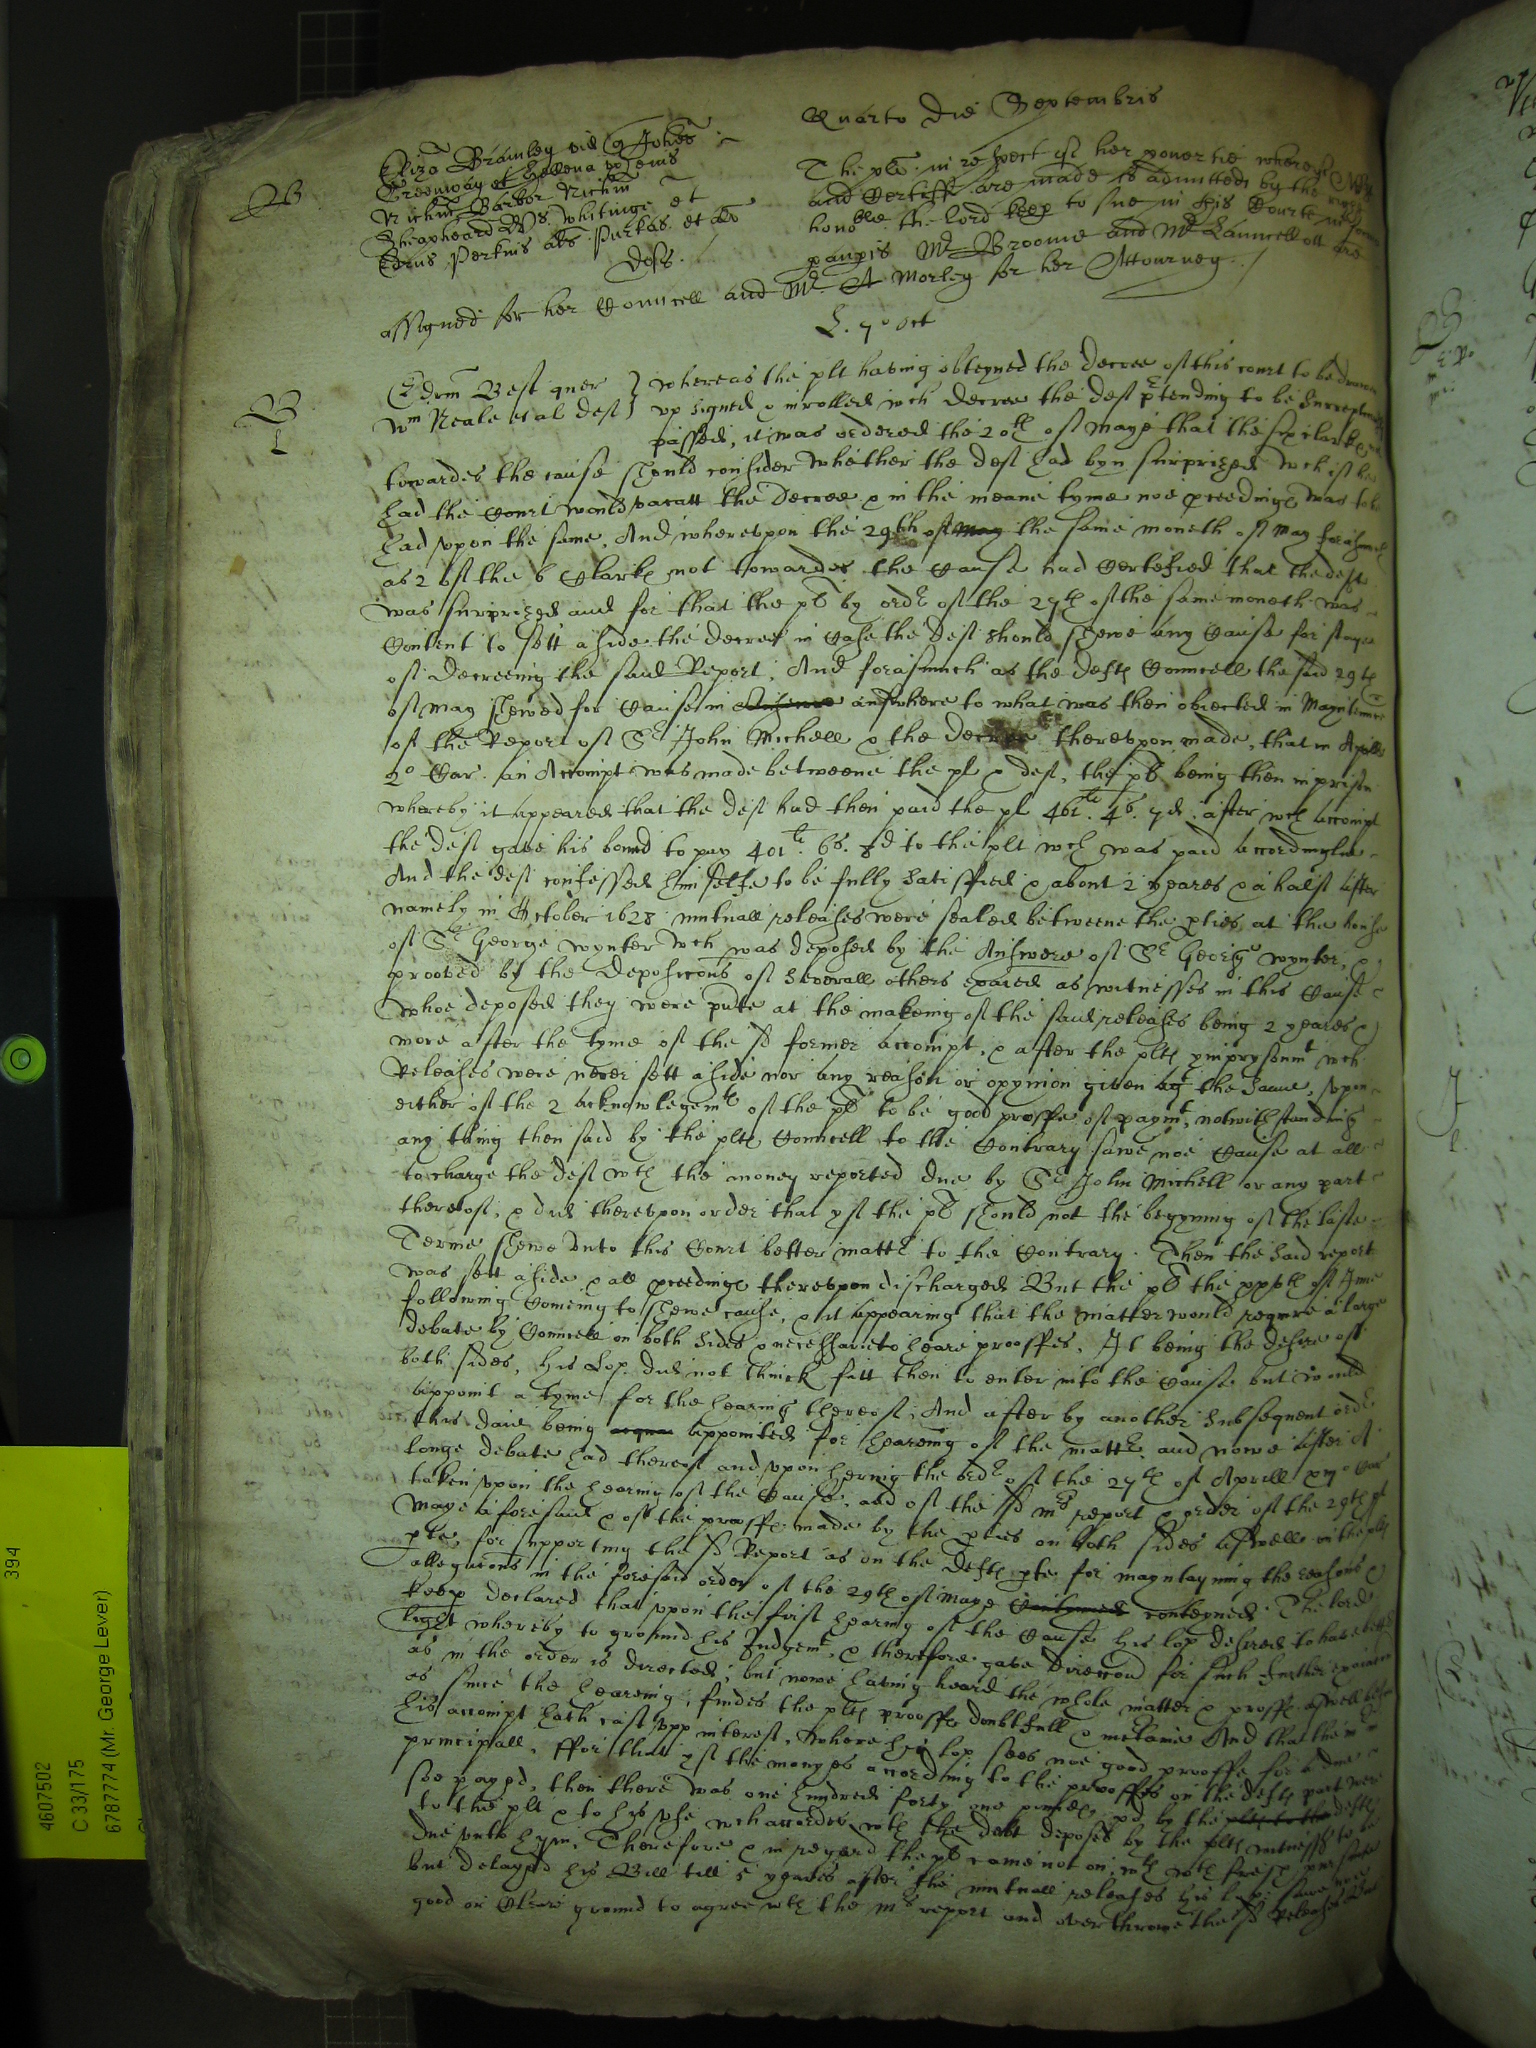 Quarto Die Septembris
B
Eliza Bramley vid q Johes
Greenway et Hellena ux eius
Richus Barbor Richm
Sheapheard Ws Whitinge et
Edrus Perkins als Purkas et al
defs.
The plt in respect of her povertie whereof
and Certiff are made is admitted by the right
honoble the lord keep to sue in this Courte in forma
paupis Mr Broome and Mr Launcellott are
assigned for her Councell and Mr A Morley for her Attourney
L. 7o Oct
B
L
Edrm Best quer
Wm Neale et al deft
whereas the plt having obteyned the decree of this court to be drawn
vp signed & inrolled wch decree the deft ptending to be surreptiously
passed, it was ordered the 20th of maye that the six clarkes not
towardes the cause should consider whether the deft had byn surprized wch if he
had the Court would vacatt the decree & in the meane tyme noe pceedinge was to be
had vpon the same. And wherevpon the 29th of may the same moneth of may forasmuch
as 2 of the 6 Clarkes not towardes the Cause had Certefied that the deft
was surprized and for that the plt by ordr of the 27th of the same moneth was
Content to sett aside the decree in Case the deft should shewe any Cause for staye
of decreeing the said Report. And forasmuch as the defts Councell the said 29th
of may shewed for Cause in Answere answhere to what was then obiected in Mayntennce
of the Report of Sr John Michell & the decree therevpon made, that in Aprill
2o Car. an Accompt was made betweene the pl & deft, the plt being then in prison
whereby it appeared that the deft had then paid the pl 461li 4s. 7d. after wch accompt
the deft gave his bound to pay 401li. 6s. 8d to the plt wch was paid accordinglie
And the deft confessed himselfe to be fully satisffied & about 2 yeares & a halfe after
namely in October 1628 mutuall releases were sealed betweene the pties at the house
of Sr George Wynter wch was deposed by the Answere of Sr George Wynter, &
prooved by the deposicons of severall others examined as witnesses in this Cause
whoe deposed they were pnte at the makeing of the said releases being 2 yeares &
more after the tyme of the sd former accompt, & after the plts ymprysonmt wch
Releases were never sett aside nor any reason or opynion given agt the same, vpon
either of the 2 acknowlegemts of the plt to be good prooffe of paymt, notwithstanding
any thing then said by the plts Councell to the Contrary sawe noe Cause at all
to charge the deft wth the money reported due by Sr John Michell or any part
thereof, & did therevpon order that yf the plt should not the begyning of the laste
Terme shewe vnto this Court better mattr to the Contrary. Then the said report
was sett aside & all pceedinge therevpon discharged But the plt the xxth of June
following Comeing to shewe cause, & it appearing that the matter would require a large
debate by Councell on both sides & necessarie to heare prooffes, It being the desire of
both sides, his Lop. did not thinck fitt then to enter into the Cause but would
appoint a tyme for the hearing thereof, And after by another subsequent ordr
this daie being appointed for heareing of the mattr and nowe after A
longe debate had thereof and vpon hering the ordr of the 27th of Aprill Car
taken vpon the hearing of the Cause, and of the sd mrs report & order of the 29th of
maye aforesaid & of the prooffe made by the pties on both sides aswell on the plts
pte for supporting the sd Report as on the Defts pte for mayntayning the reasons &
allegacons in the foresaid order of the 29th of maye Conteyned conteyned. The lord
keep declared that vpon the first hearing of the Cause his lop desired to have better
light whereby to ground his Judgemt, & therefore gave direccon for such further
as in the order is directed, but nowe having heard the whole matter & prooffe aswell before
as since the heareing, findes the plts prooffe doubtfull & incertaine And that the mr in
his accompt hath cast vpp interest, where his lop sees noe good prooffe for a due
principall, ffor that yf the monyes according to the prooffes on the defts part were
soe payed, then there was one hundred forty one pounds pd by the plt to the defts
to the plt & to his vse wch accordes wth the debt deposed by the plts witnesses to be
due vnto hym. Therefore & in regard the plt came not on wth wth fresh pursute
but delayed his Bill till 5 yeares after the mutuall releases his lop. sawe noe
good or Cleare ground to agree wth the mrs report and overthrowe the sd Releases But
394
4607502
C 33/175
6787774 (Mr. George Lever)